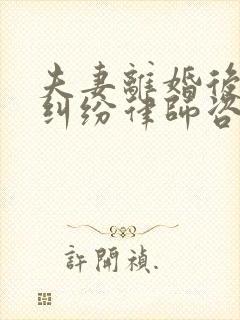 夫妻離婚後
糾紛律師咨
許開禎.